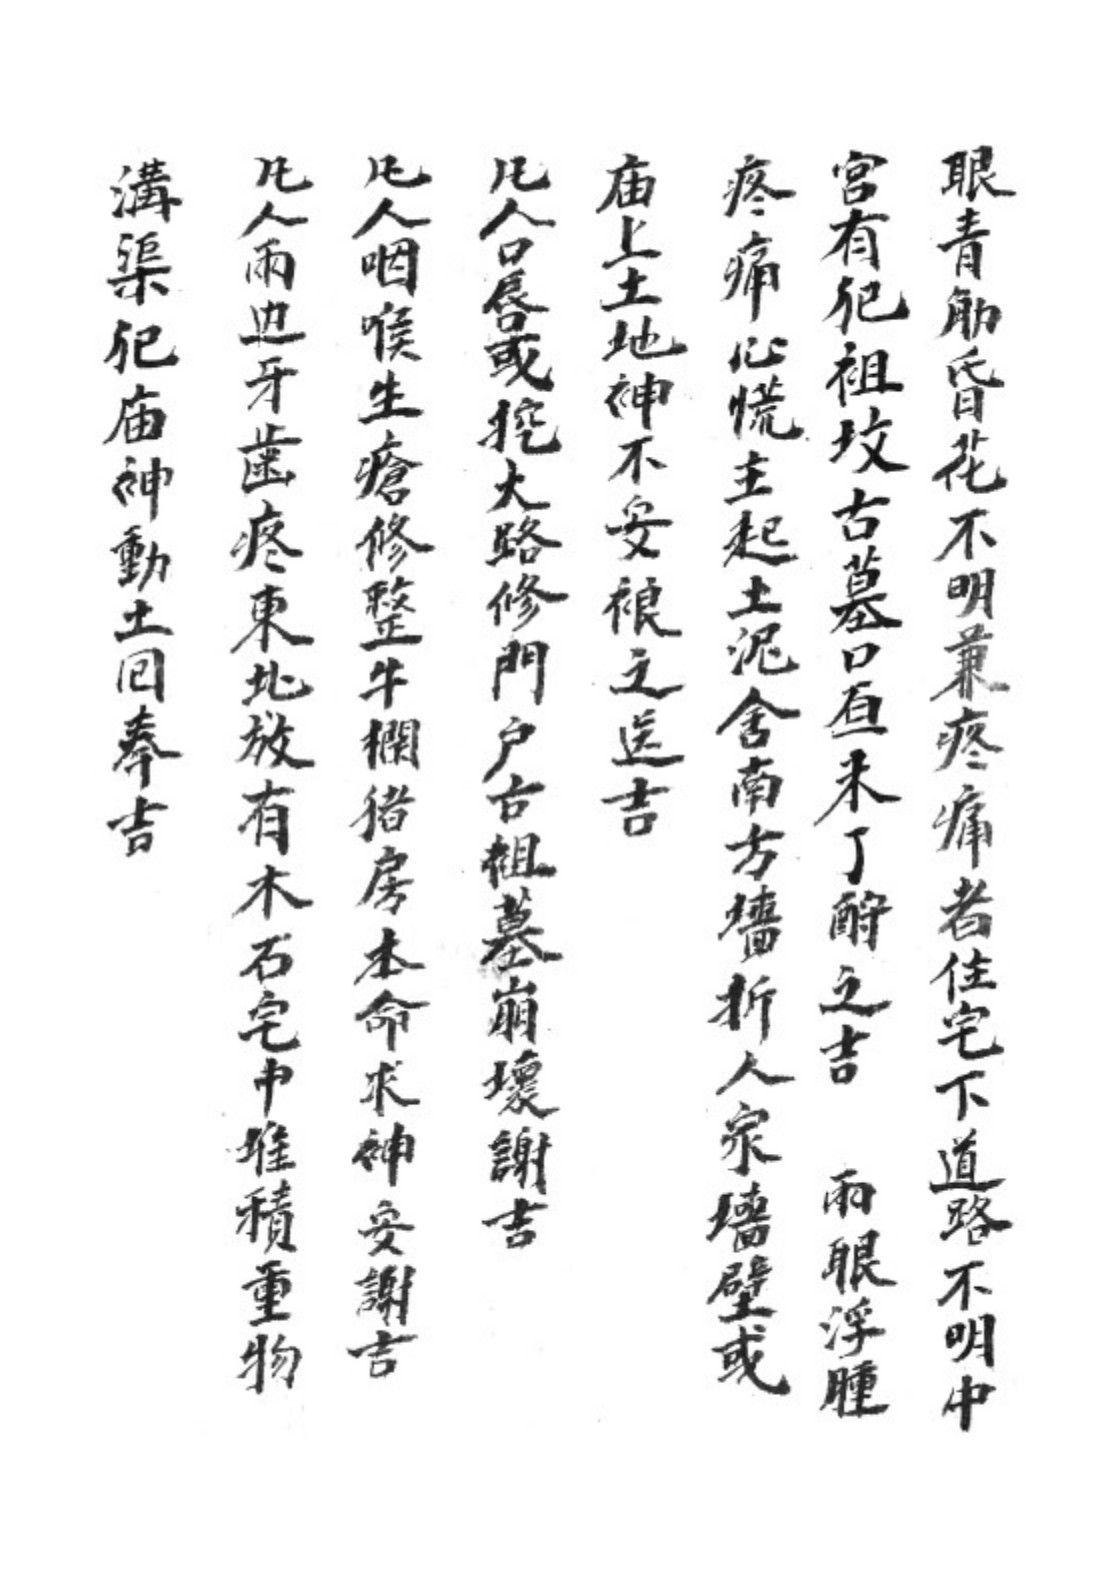 眼青筋昏花不明兼疼痛者住宅下道路不明中
宮有犯祖坟古墓口愿未了酧之吉　両眼浮腫
疼痛心慌主起土泥舍南方墻折人家墻壁或
庙上土地神不安禳之送吉
凡人口唇或挖大路修門户古祖墓崩壞謝吉
凡人咽喉生瘡修整牛欄猪房本命求神安謝吉
凡人両边牙齒疼東北放有木石宅中堆積重物
溝渠犯庙神動土回奉吉